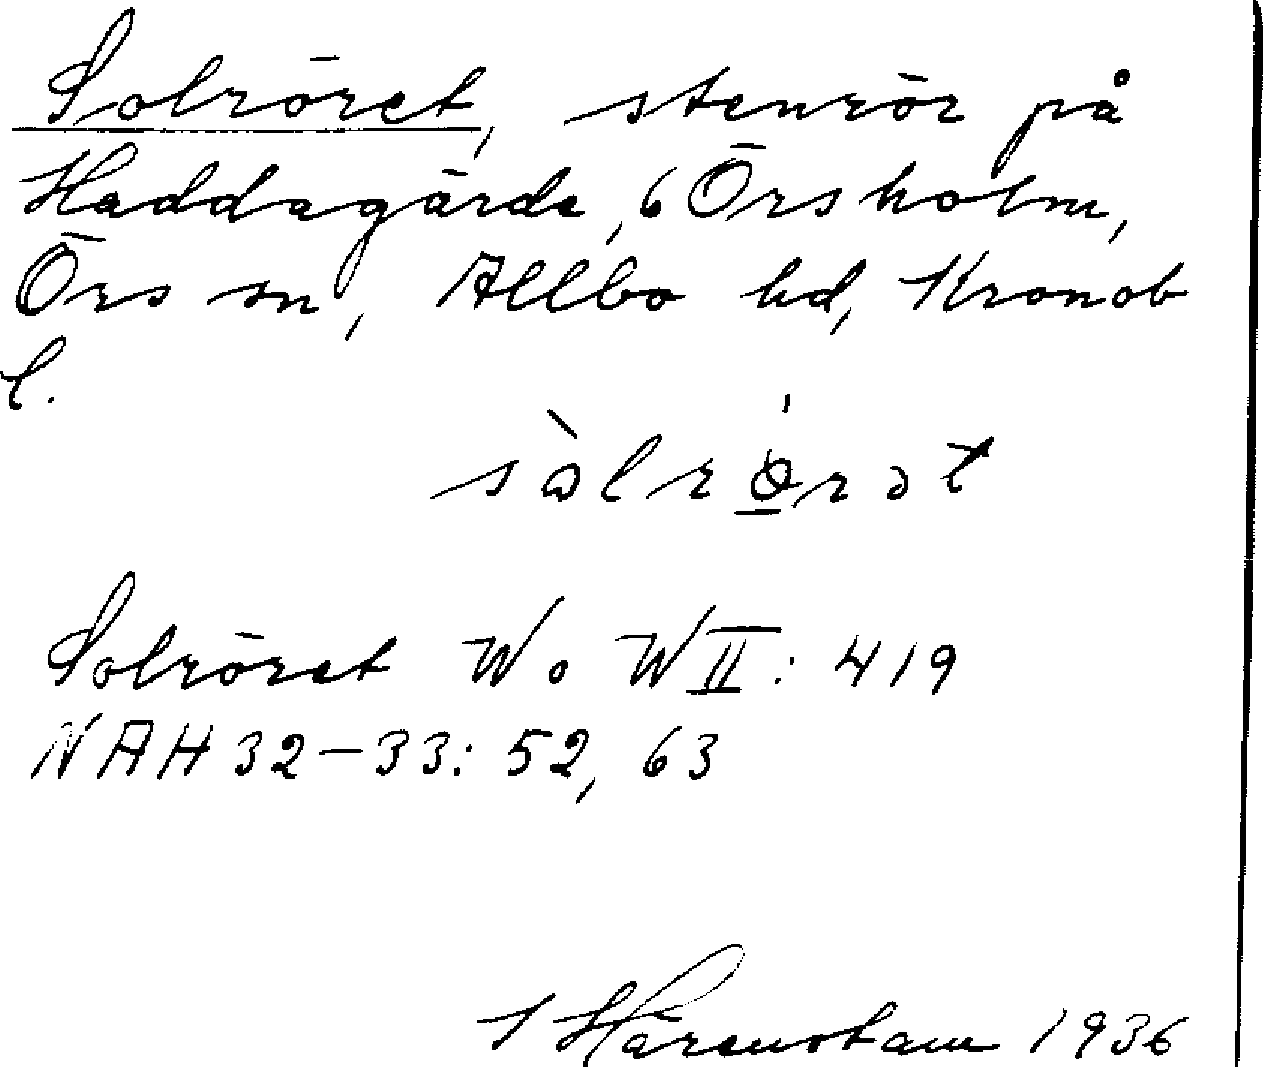 Solröret, stenrör på
Haddagärde, 6 Örsholm,
Örs sn, Allbo hd, Kronob
l.
sὼlrǫ́rət
Solröret W o W II: 419
NAH 32–33: 52, 63
S Härenstam 1936